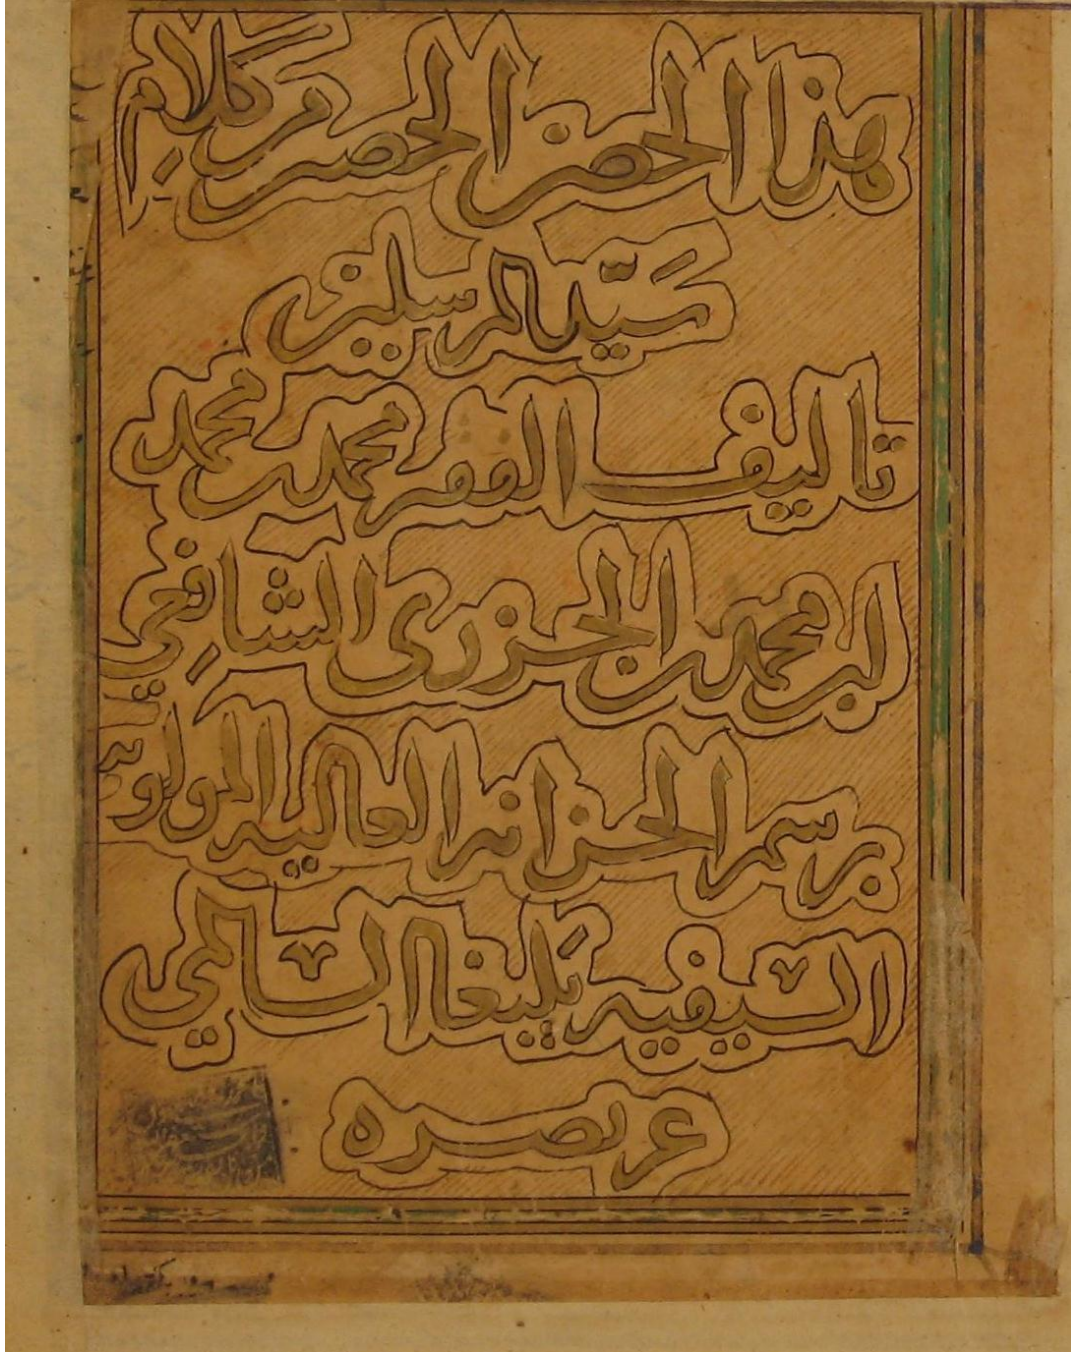 هذا الحصن الحصين من كلام
سيد المرسلين
تاليف الفقير محمد بن محمد
ابن محمد بن الجزري الشافعي
برسم الخزانة العالية المولوية
السيفية يلبغا السالمي
عز نصره